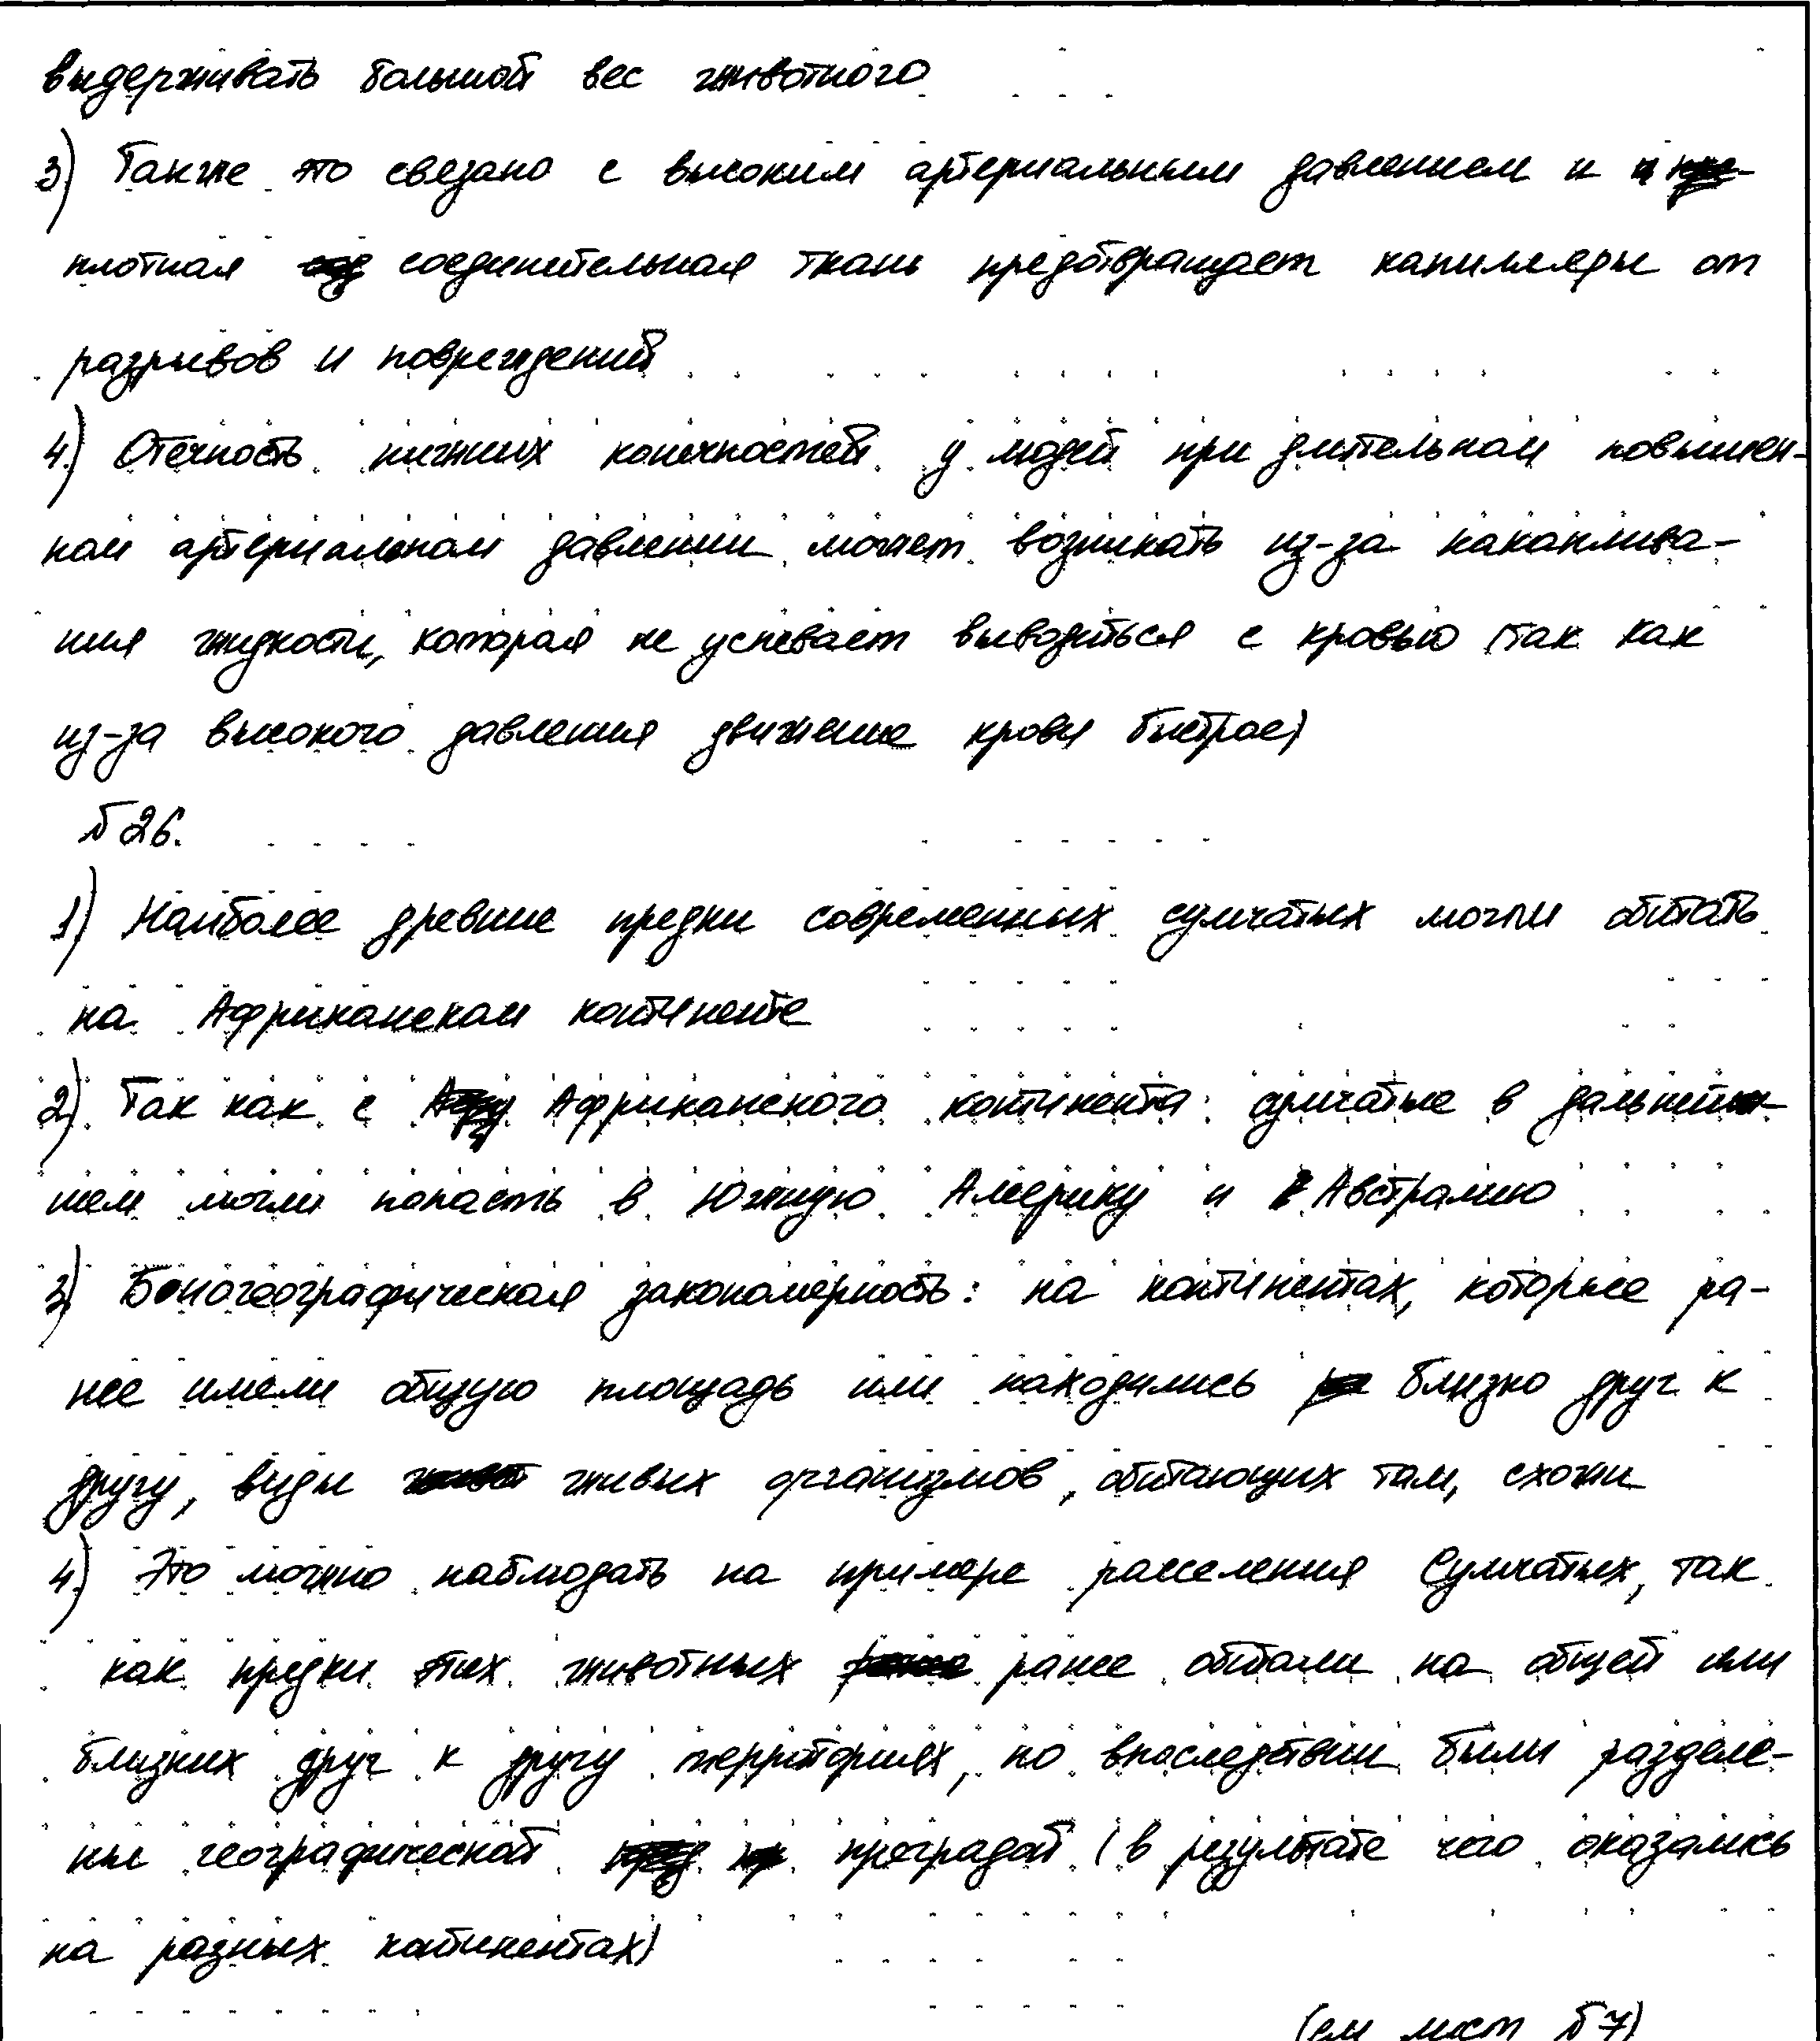 выдерживать большой вес животного
3) Также это связано с высоким артериальным давлением и и кре-
плотная сод соединительная ткань предотвращает капилляры от
разрывов и повреждений
4) Отечность нижних конечностей у людей при длительном повышен-
ном артериальном давлении может возникать из-за накаплива-
ния жидкости, которая не успевает выводиться с кровью (так как
из-за высокого давления движение крови быстрое)
№ 26.
1) Наиболее древние предки современных сумчатых могли обитать
на Африканском континенте
2) Так как с Африканского континента сумчатые в дальней-
шем могли попасть в Южную Америку и Австралию
3) Биогеографическая закономерность: на континентах, которые ра-
нее имели общую площадь или находились близко друг к
другу, виды живых организмов, обитающих там, схожи
4) Это можно наблюдать на примере расселения Сумчатых, так
как предки этих животных ранее обитали на общей или
близких друг к другу территориях, но впоследствии были разделе-
ны географической преградой (в результате чего оказались
на разных континентах)
(см лист № 7)